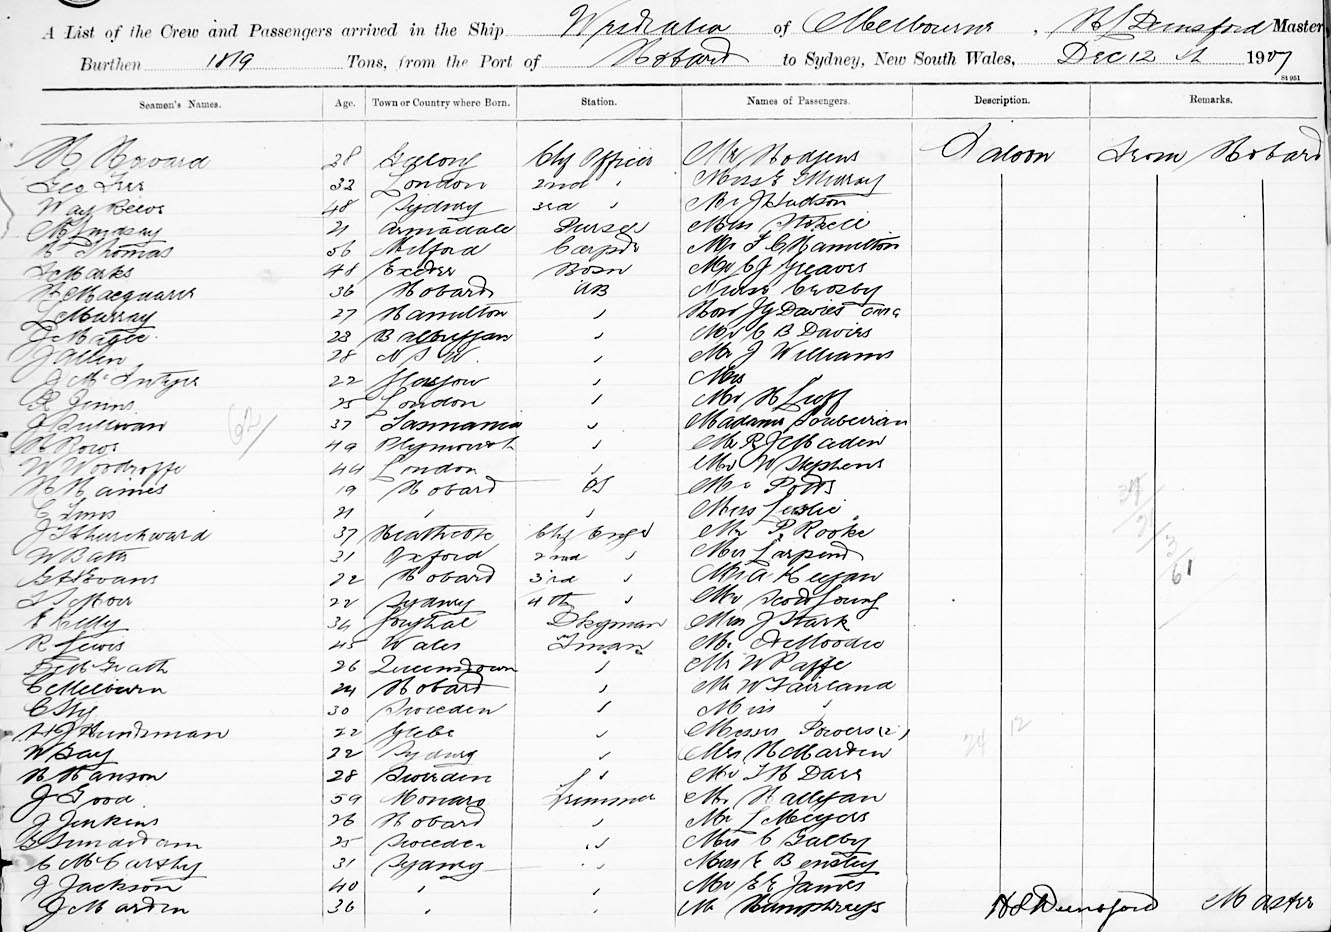 A List of the Crew and Passengers arrived in the Ship Westralia of Melbourne, H L Dunsford Master
Burthen 1819 Tons, from the Port of Hobart to Sydney, New South Wales, Dec 12 1907
S1 951
Seamen's Names. Age. Town or Country where Born. Station. Names of Passengers. Description. Remarks.
28 Geelong Chf Officer Mr Hodgens Saloon From Hobart
32 London 2nd " Miss E G Murray
48 Sydney 3rd " Mr J Hudson
M Lindsay 21 Armadale Purser Miss
H Thomas 56 Milford Carptr Mr F C Hamilton
Marks 48 Exeter Bosn Mr C J Greaves
H Macquarie 36 Hobart AB Nurse Crosby
L Murray 27 Hamilton " Hon J G Davies CMG
J Magee 23 " Mr C B Davies
J Allen 28 N S W " Mr J Williams
J McIntyre 22 Glasgow " Mrs
25 London " Mr H Luff
J Sullivan 37 Tasmania " Madame
49 Plymouth " Mr R J Maden
W Woodroffe 44 London " Mr W Stephens
H Haines 19 Hobart OS Mr Potts
21 " " Miss Leslie
J T Churchward 37 Heathcote Chf Engr Mr P Rooke
W Bath 31 Oxford 2nd "
G F Evans 22 Hobart 3rd " Keegan
22 Sydney 4th " Mr Scott Young
E Kelly 34 Dkyman Miss J Stark
R Lewis 45 Wales Fman Moodie
McGrath 26 Queenstown " Mr W Paffe
C Melburn 24 Hobart " Mr W Fairland
30 Sweden " Miss "
Huntsman 22 Glebe " Messrs Powers (2)
W Gay 22 Sydney " Mrs H Marden
H Hanson 28 Sweden " Mr T H Darr
J Good 59 Monaro Trimmer Mr Halligan
J Jenkins 26 Hobart " Mr L Meyers
25 Sweden " Galby
C McCarthy 31 Sydney " Miss E Bensley
J Jackson 40 " " Mr E E James
J Marden 36 " " Humphreys H L Dunsford Master
62
61
24 12